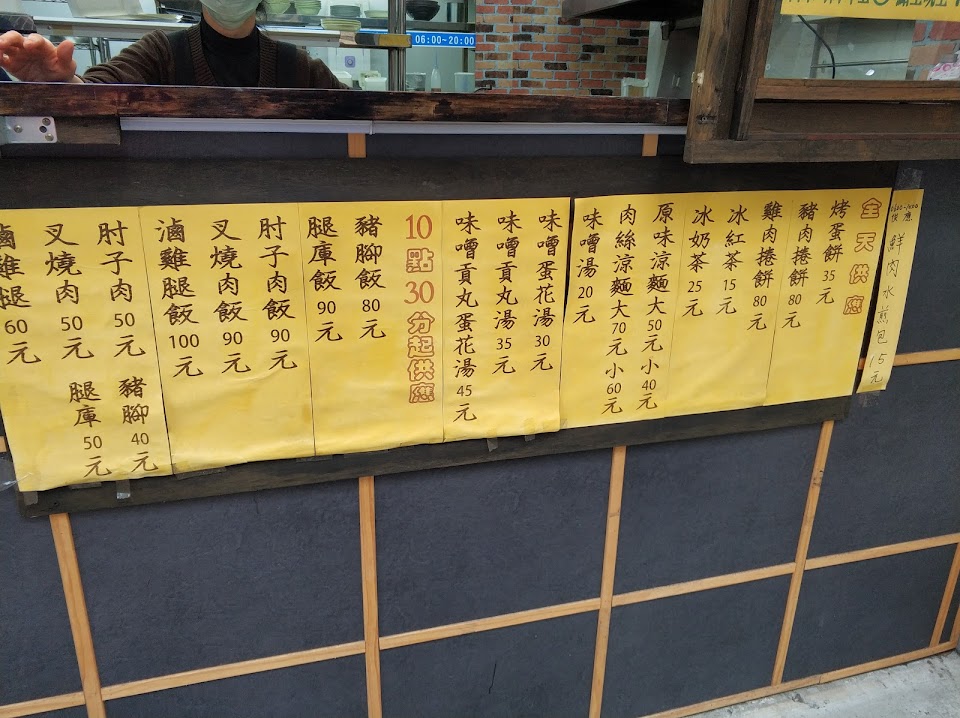 06:00~20:00
供應
鮮肉水煎包15元
全天供應
烤蛋餅35元
豬肉捲餅80元
雞肉捲餅80元
冰紅茶15元
冰奶茶25元
原味涼麵大50元小40元
肉絲涼麵大70元小60元
味噌湯20元
味噌蛋花湯30元
味噌貢丸湯35元
味噌貢丸蛋花湯45元
10點30分起供應
豬腳飯80元
腿庫飯90元
肘子肉飯90元
叉燒肉飯90元
滷雞腿飯100元
肘子肉50元
叉燒肉50元
滷雞腿60元
豬腳40元
腿庫50元